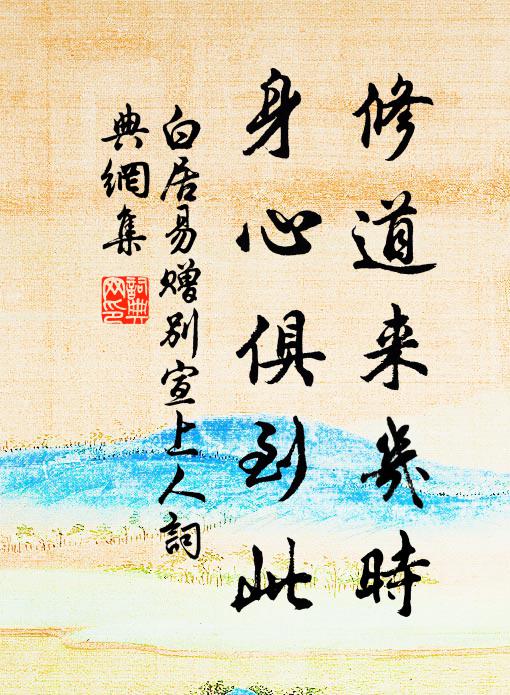 修道来幾時
身心俱到此
白居易贈別宣上人詞
典網集
詞典
网印